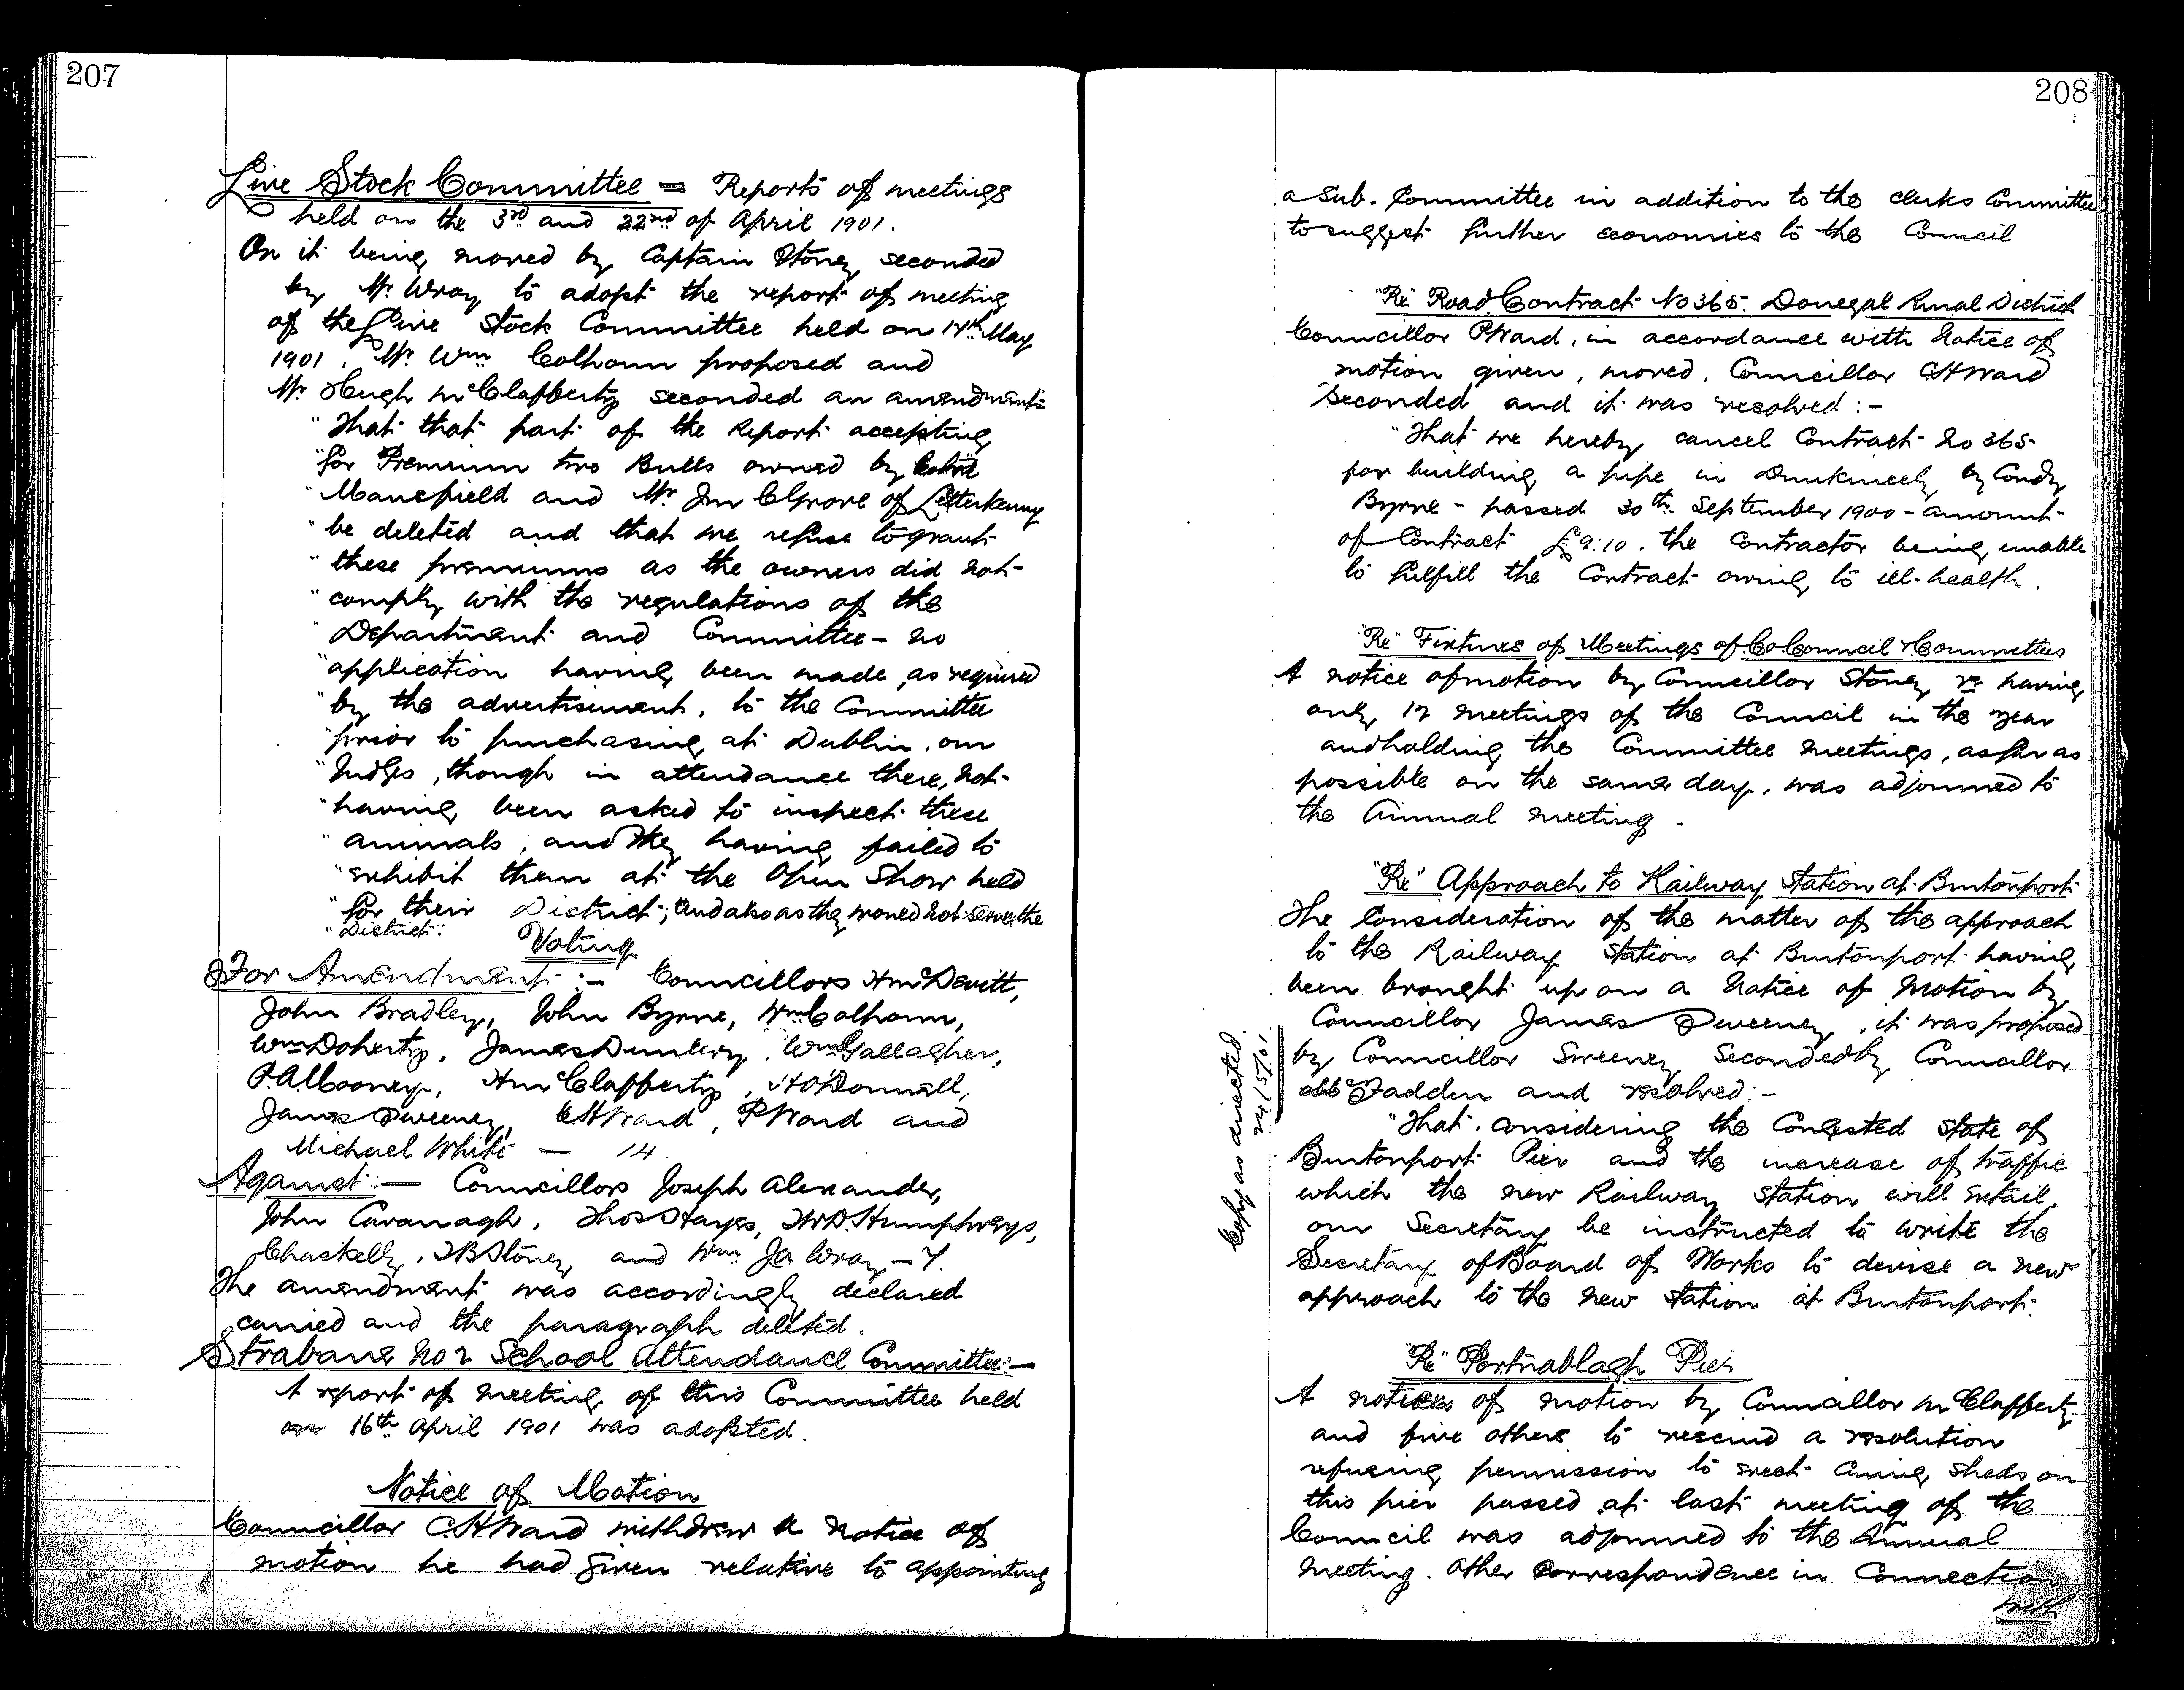 207
Live Stock Committee = Reports of meetings
held on the 3rd and 22nd of April 1901.
On it being moved by Captain Stoney seconded
by Mr Wray to adopt the report of meeting
of the Live Stock Committee held on 14th May
1901. Mr Wm Colhoun proposed and
Mr Hugh McClafferty seconded an amendment
"That that part of the Report accepting
"for Premium two Bulls owned by
"Mansfield and Mr Jn C Grove of Letterkenny
"be deleted and that we refuse to grant
"these premiums as the owners did not
"comply with the regulations of the
"Department and Committee - no
"application having been made, as required
"by the advertisement, to the Committee
"prior to purchasing at Dublin, our
"Judges, though in attendance there, not
"having been asked to inspect these
"animals, and they having failed to
"exhibit them at the Open Show held
"for their District; and also as they would not serve the
"District".
Voting
For Amendment :- Councillors H McDevitt,
John Bradley, John Byrne, Wm Colhoun,
Wm Doherty, James Dunlevy, Wm Gallagher,
P. A. Mooney, H McClafferty, H O'Donnell,
James Sweeney, C H Ward, P Ward and
Michael White — 14.
Against :- Councillors Joseph Alexander,
John Cavanagh, Thos Hayes, T W D. Humphreys,
Chas Kelly, J B Stoney and Wm Ja Wray - 7.
The amendment was accordingly declared
carried and the paragraph deleted.
Strabane No 2 School Attendance Committee:-
A report of meeting of this Committee held
on 16th April 1901 was adopted.
Notice of Motion
Councillor C. H Ward withdrew a notice of
motion he had given relative to appointing
208
a Sub-Committee in addition to the clerks Committee
to suggest further economies to the Council
"Re" Road Contract No 365. Donegal Rural District
Councillor P Ward, in accordance with Notice of
motion given, moved, Councillor C H Ward
Seconded and it was resolved :-
"That we hereby cancel Contract No 365
for building a pipe in Dunkineely by Condy
Byrne - passed 30th September 1900 - amount
of Contract £9:10. the Contractor being unable
to fulfill the Contract owing to ill-health.
"Re" Fixtures of Meetings of Co Council & Committees
A notice of motion by Councillor Stoney re having
only 12 meetings of the Council in the year
and holding the Committee meetings, as far as
possible on the same day, was adjourned to
the Annual meeting.
"Re" Approach to Railway Station at Burtonport
The Consideration of the matter of the approach
to the Railway Station at Burtonport having
been brought up on a Notice of Motion by
Councillor James Sweeney, it was proposed
by Councillor Sweeney Seconded by Councillor
McFadden and resolved:-
"That, considering the Congested state of
Burtonport Pier and the increase of traffic
which the new Railway Station will entail,
our Secretary be instructed to write the
Secretary of Board of Works to devise a new
approach to the new Station at Burtonport.
Copy as directed.
24/5/01
"Re" Portnablagh Pier
A notice of motion by Councillor McClafferty
and five others to rescind a resolution
refusing permission to erect Curing Sheds on
this pier passed at last meeting of the
Council was adjourned to the Annual
meeting. Other Correspondence in Connection
with